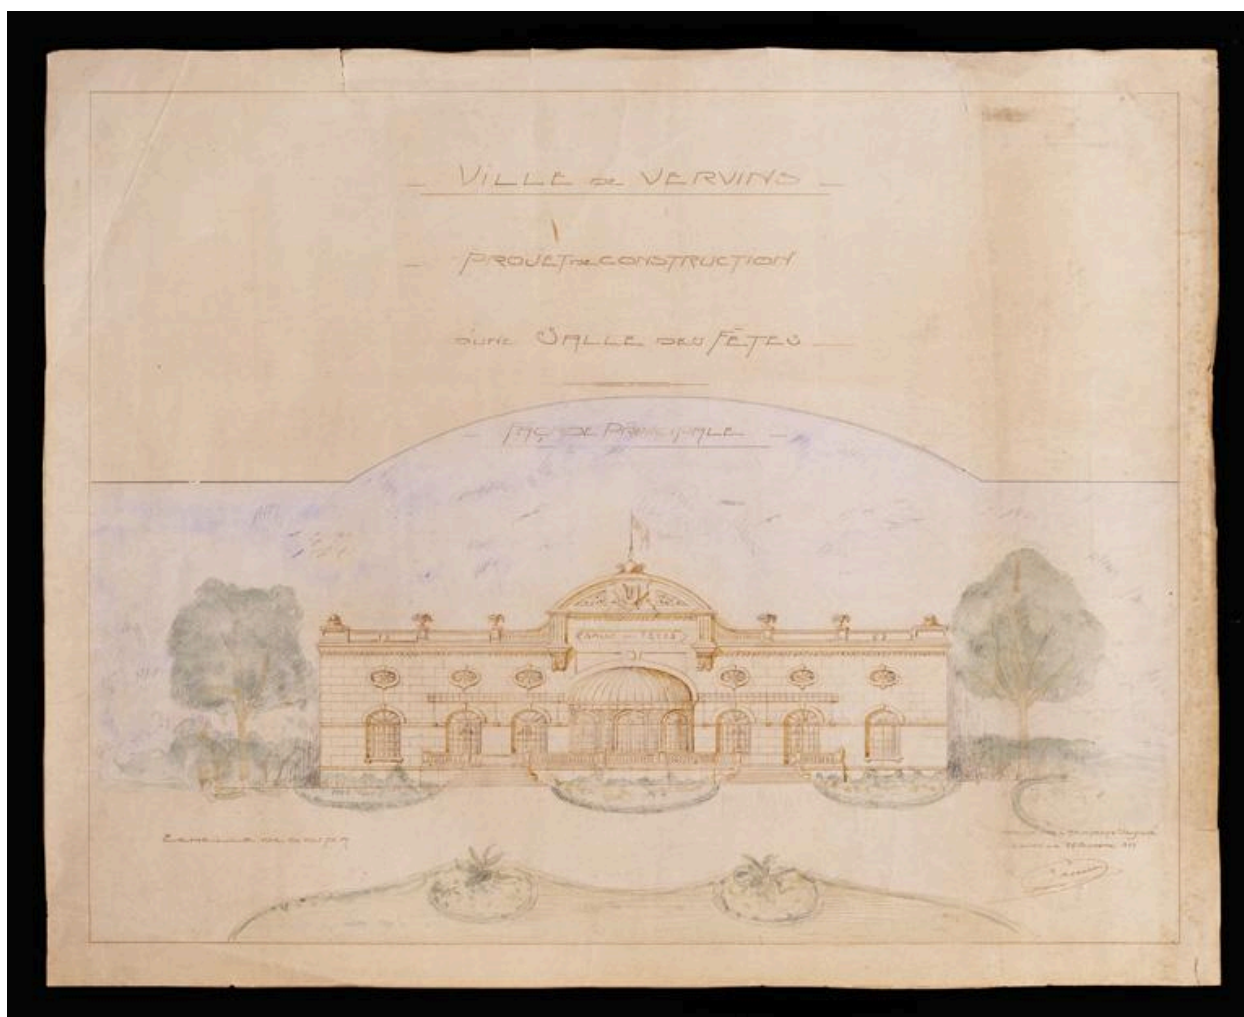 VILLE DE VERVINS
PROJET DE CONSTRUCTION
D'UNE SALLE DES FÊTES
FAÇADE PRINCIPALE
SALLE DES FÊTES
ECHELLE DE